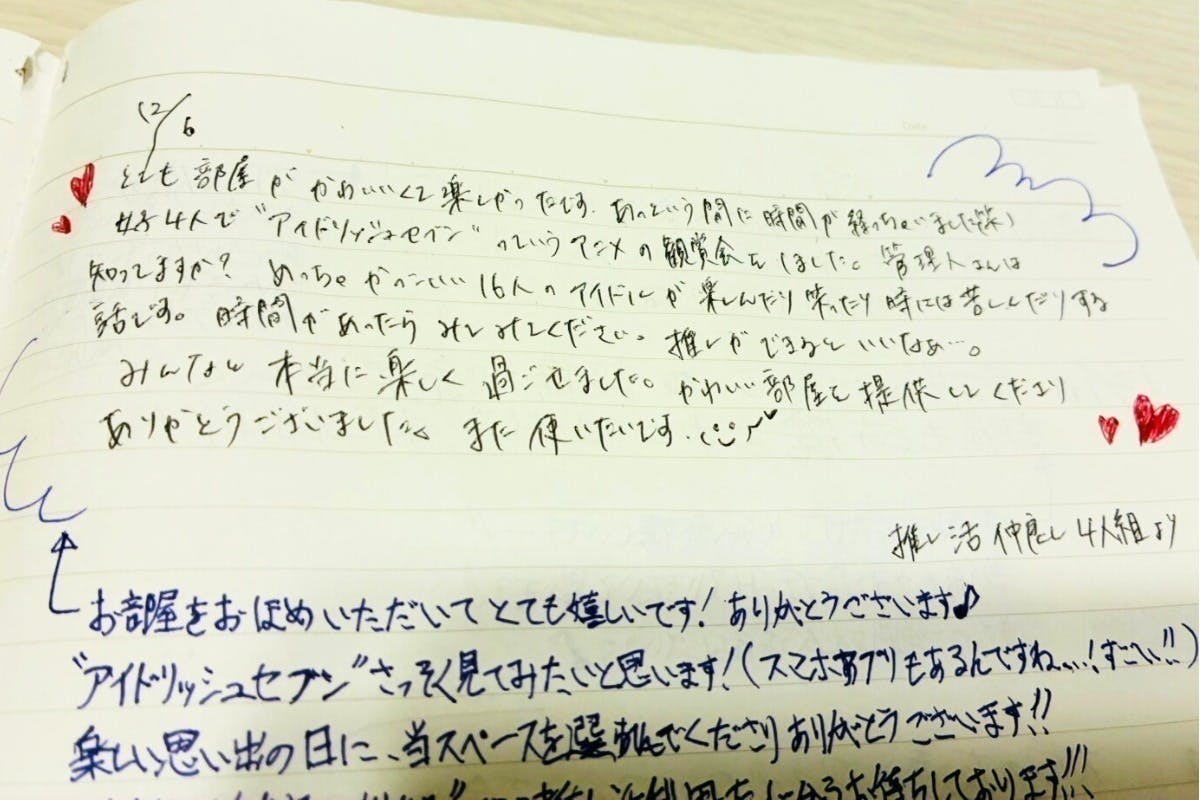 12/6
とても部屋がかわいいくて楽しかったです。あっという間に時間が経っちゃいました笑)
女子4人で"アイドリッシュセブン"っていうアニメの観賞会をしました。管理人さんは
知ってますか? めっちゃかっこいい16人のアイドルが楽しんだり笑ったり時には苦しんだりする
話です。時間があったらみてみてください。推しができるといいなぁ…。
みんなで本当に楽しく過ごせました。かわいい部屋を提供してくださり
ありがとうございました。また使いたいです。
推し活仲良し4人組より
お部屋をおほめいただいてとても嬉しいです!ありがとうございます♪
"アイドリッシュセブン"さっそく見てみたいと思います!(スマホアプリもあるんですね…!すごい!!)
楽しい思い出の日に、当スペースを選んでくださりありがとうございます!!
お待ちしております!!!